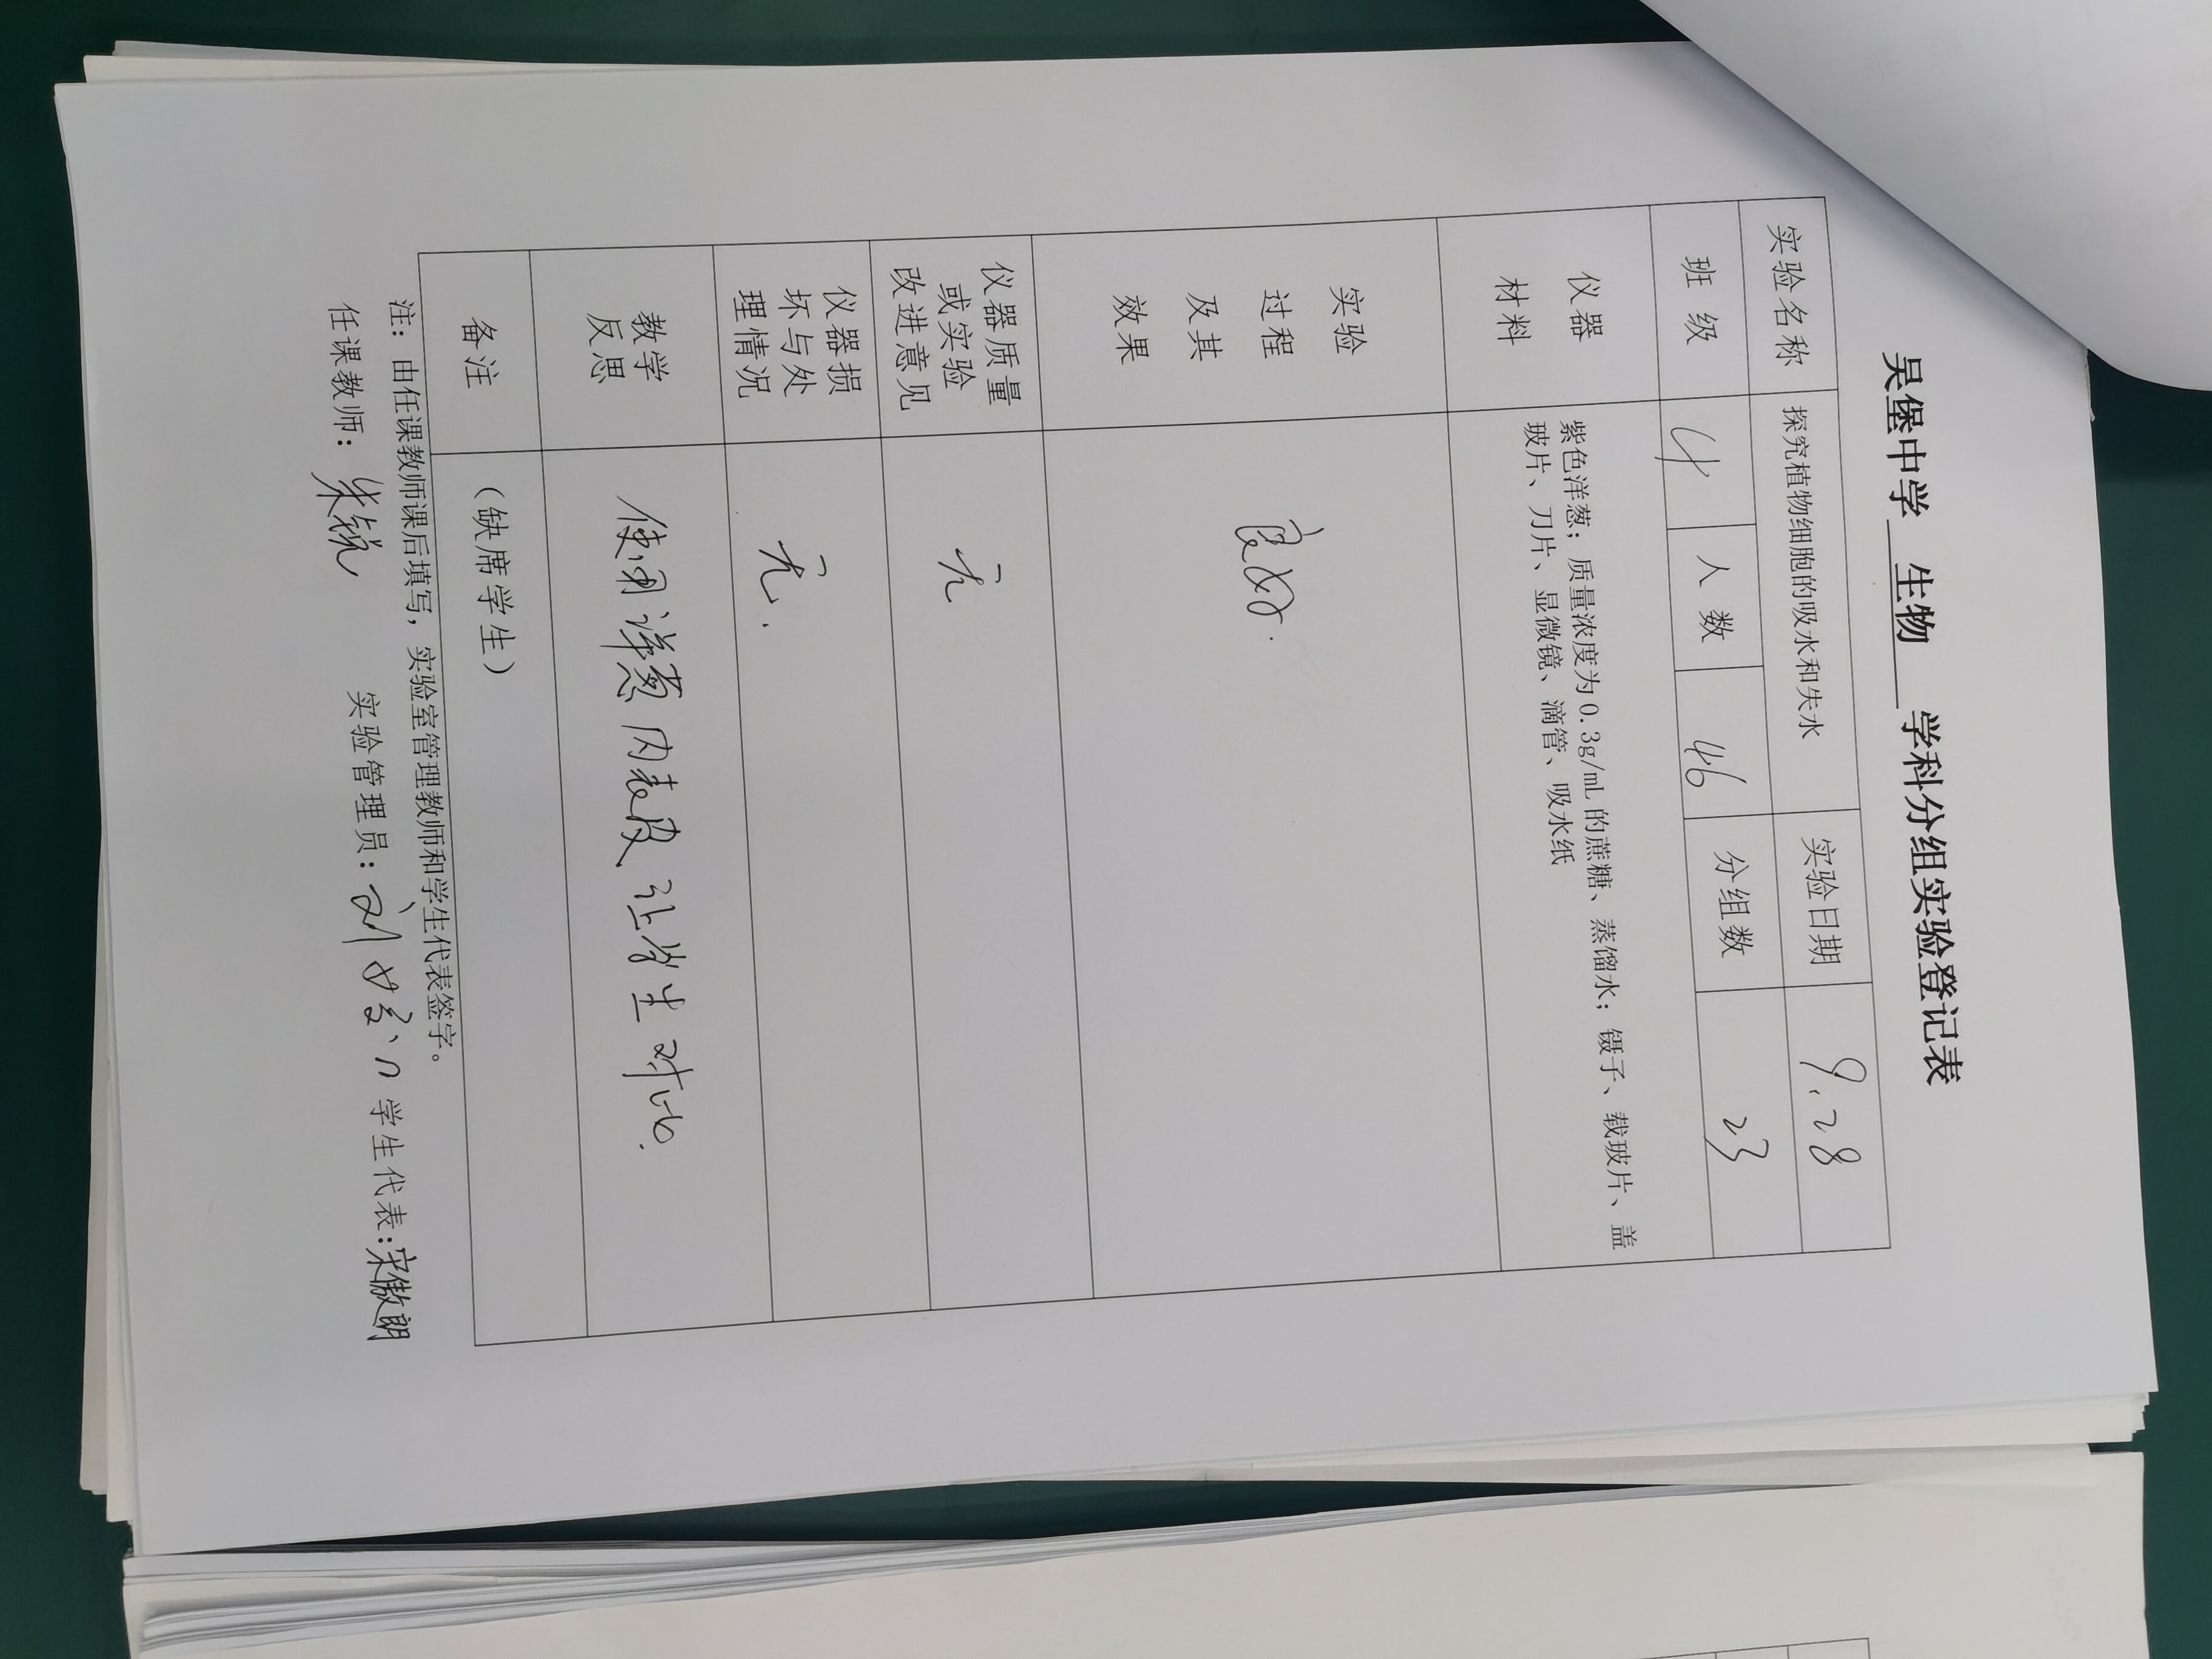 吴堡中学 生物 学科分组实验登记表
实验名称 探究植物细胞的吸水和失水 实验日期 9.28
班级 4 人数 46 分组数 23
仪器材料 紫色洋葱；质量浓度为0.3g/mL的蔗糖、蒸馏水；镊子、载玻片、盖
玻片、刀片、显微镜、滴管、吸水纸
实验
过程
及其
效果
良好.
仪器质量
或实验
改进意见
无
仪器损
坏与处
理情况
无.
教学
反思
使用洋葱内表皮让学生对比.
备注 （缺席学生）
注：由任课教师课后填写，实验室管理教师和学生代表签字。
任课教师：朱锐 实验管理员：刘 学生代表：宋傲朗